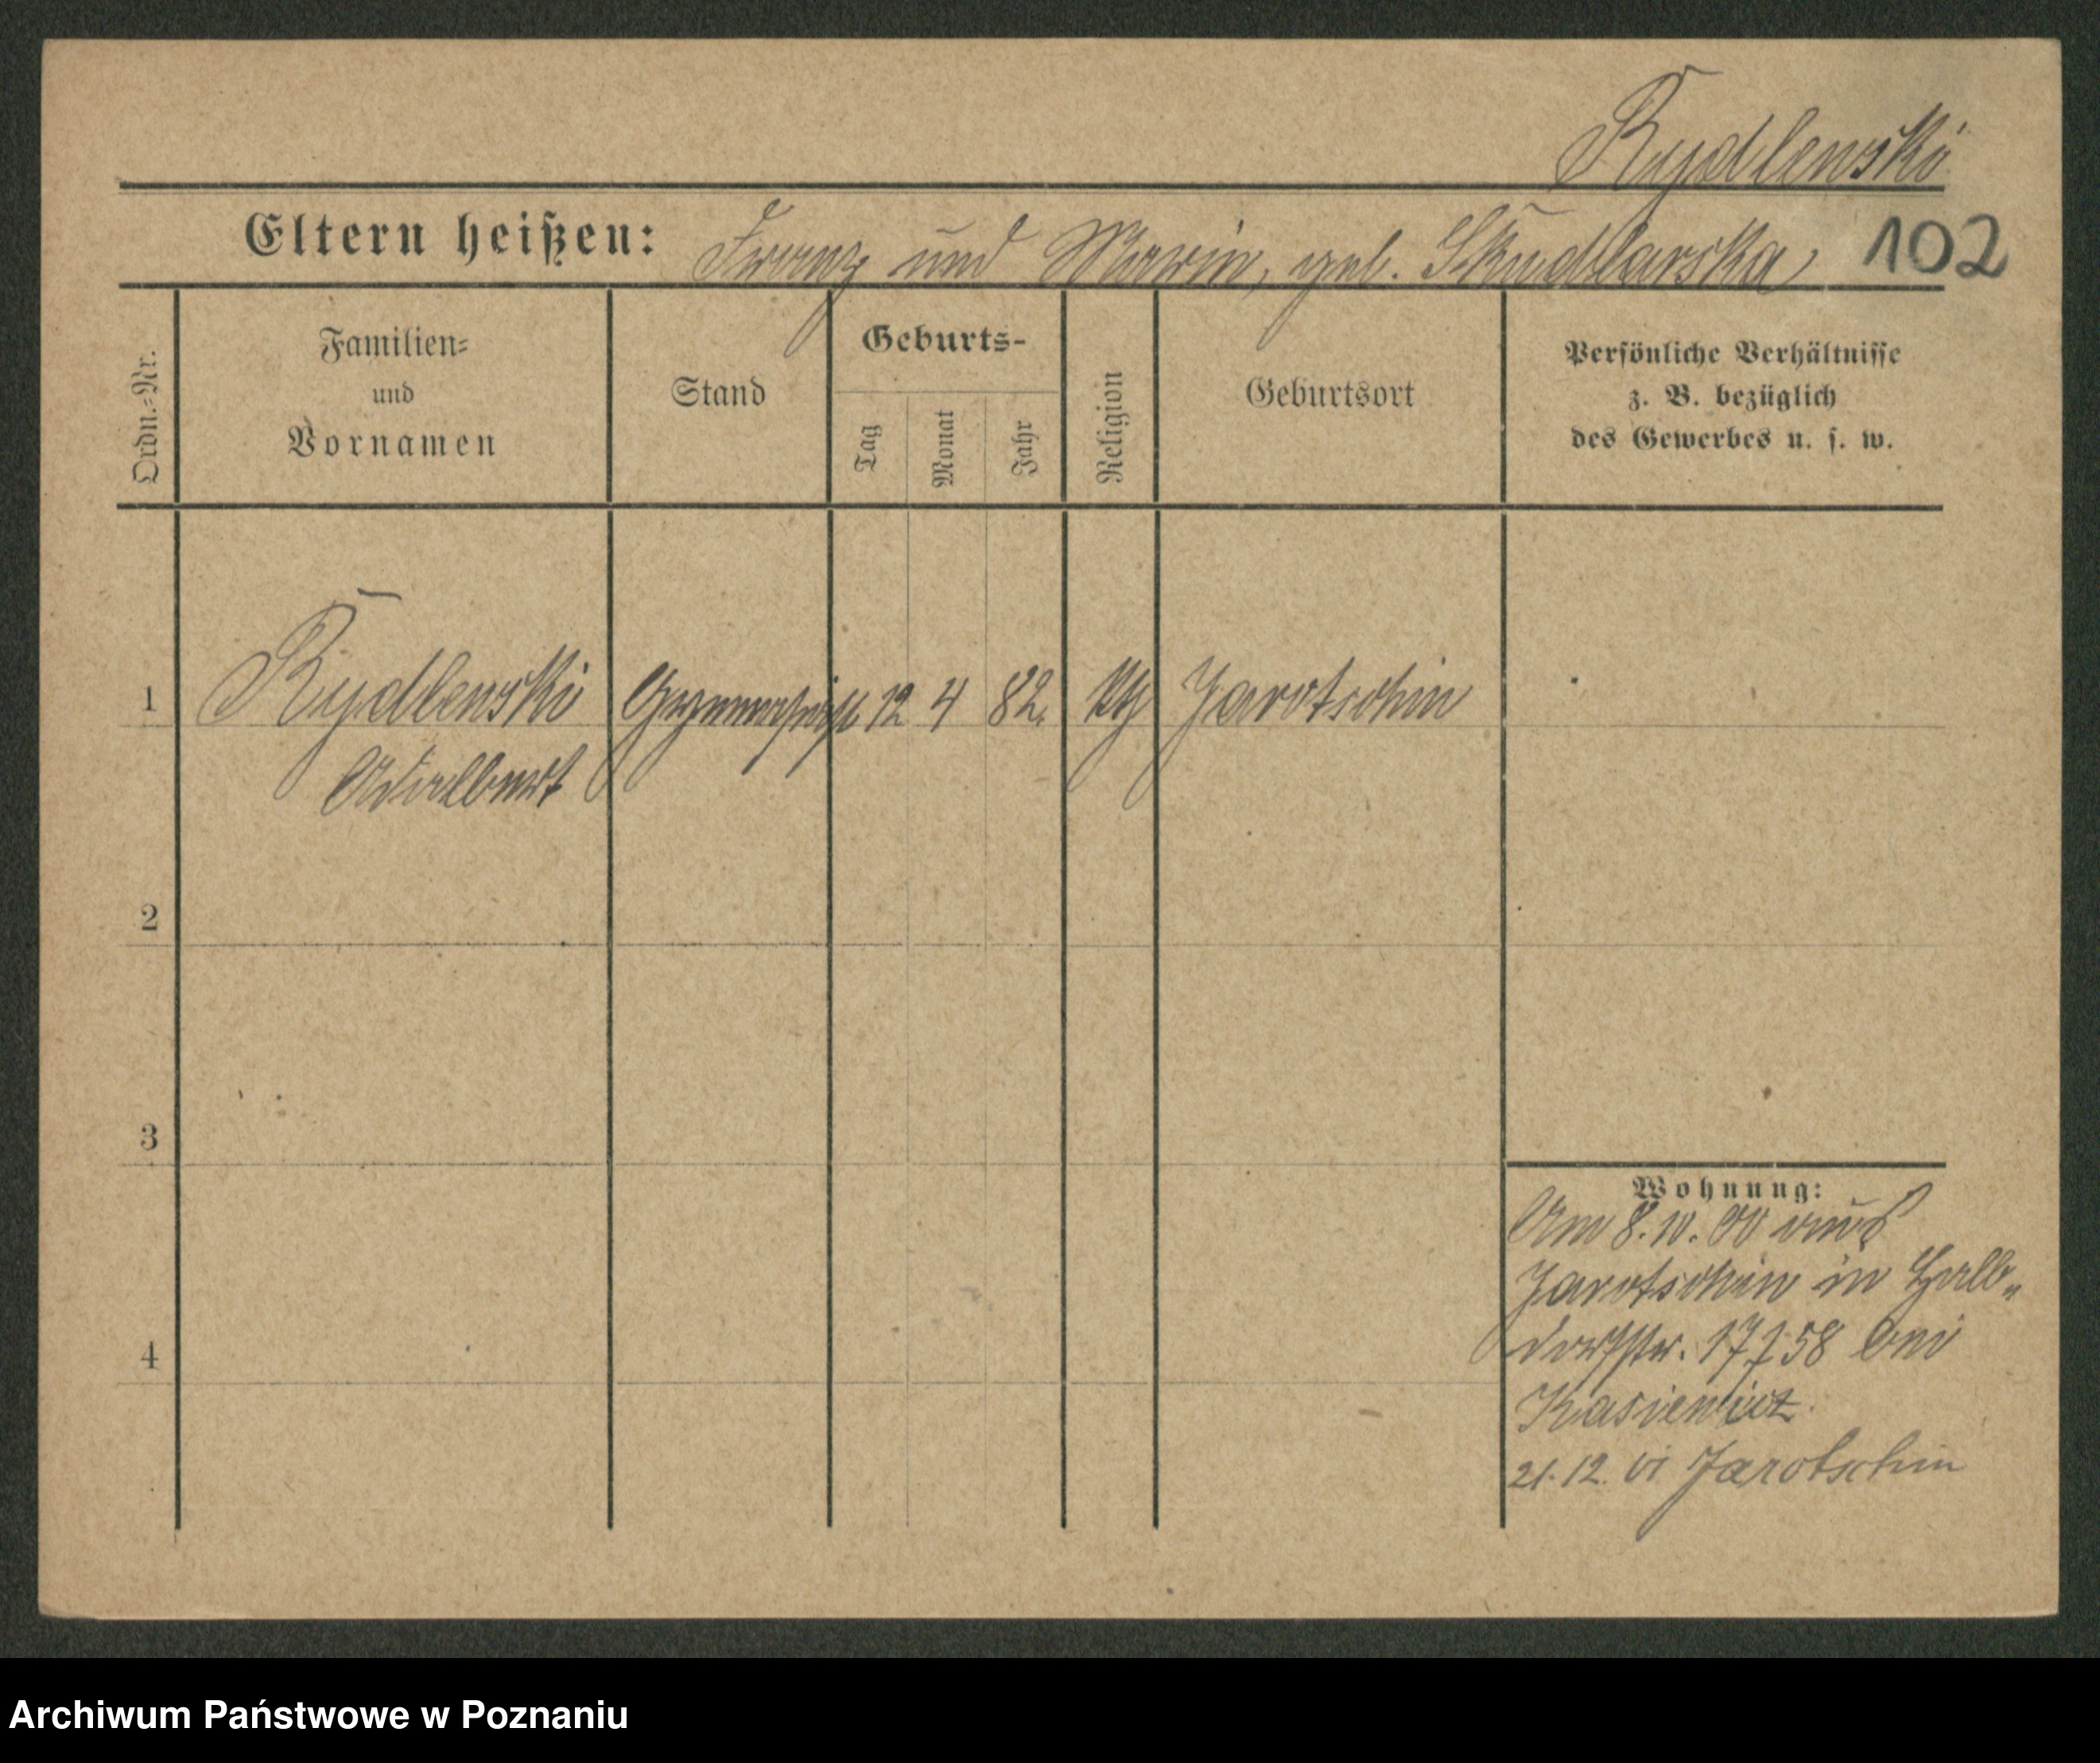 Rydlewski
Eltern heißen: Franz und Marie, geb. Skudlarska 102
Ordn.-Nr.
Familien-
und
Vornamen
Stand
Geburts-
Tag
Monat
Jahr
Religion
Geburtsort
Persönliche Verhältnisse
z. B. bezüglich
des Gewerbes u. s. w.
1 Rydlewski Gymnasiast 12 4 82. kth Jarotschin
Adalbert
2
3
4
Wohnung:
Am 8.10.00 aus
Jarotschin in Halb-
dorfstr. 17 I 58 bei
21.12. Jarotschin
Archiwum Państwowe w Poznaniu